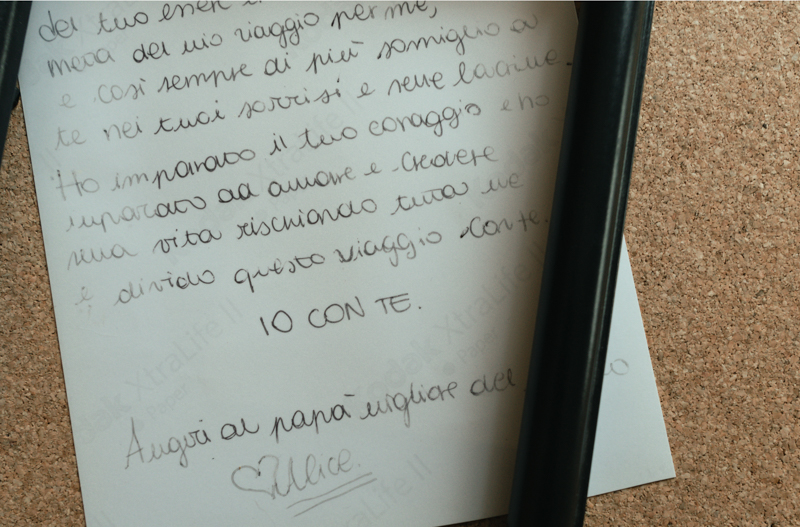 del tuo essere
meta del mio viaggio per me,
e così sempre di più somiglio a
te nei tuoi sorrisi e nelle lacrime.
Ho imparato il tuo coraggio e ho
imparato ad amare e credere
nella vita rischiando tutta me
e divido questo viaggio con te.
IO CON TE.
Auguri al papà migliore del
Alice.
Kodak XtraLife II
Paper